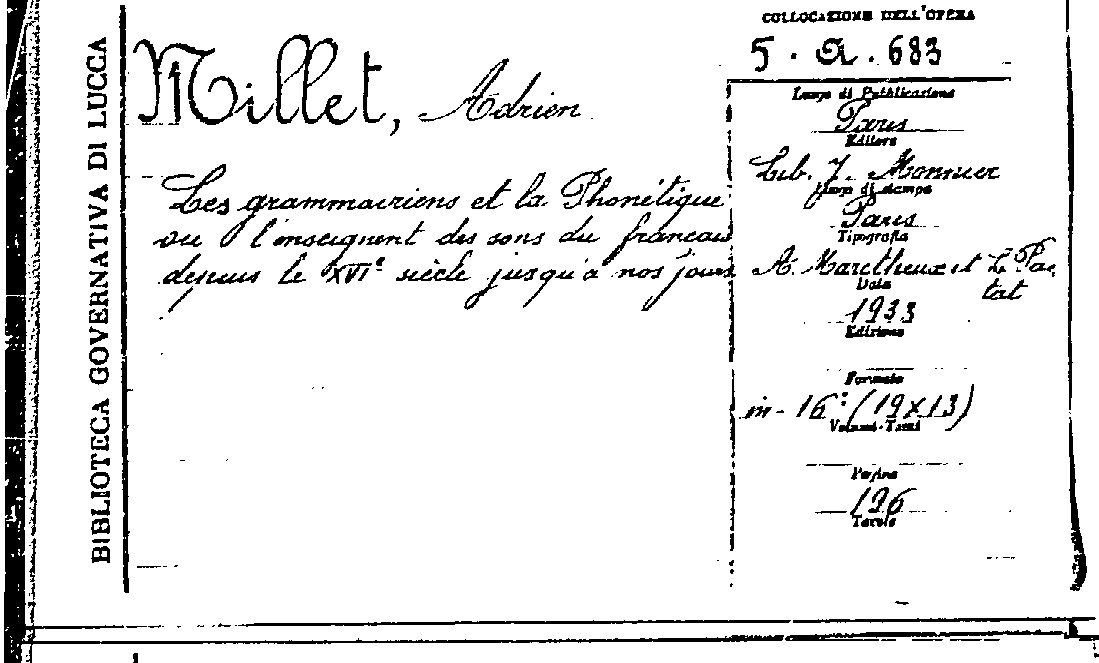 BIBLIOTECA GOVERNATIVA DI LUCCA
Millet, Adrien
Les grammairiens et la Phonétique
ou l'enseignent des sons du français
depuis le XVIe siècle jusqu'à nos jours
COLLOCAZIONE DELL'OPERA
5 · a. 683
Luogo di Pubblicazione
Paris
Editore
Lib. J. Monnier
Luogo di stampa
Paris
Tipografia
A. Maretheux et L. Pac
tat
Data
1933
Edizione
Formato
in-16° (19x13)
Volumi-Tomi
Pagine
196
Tavole